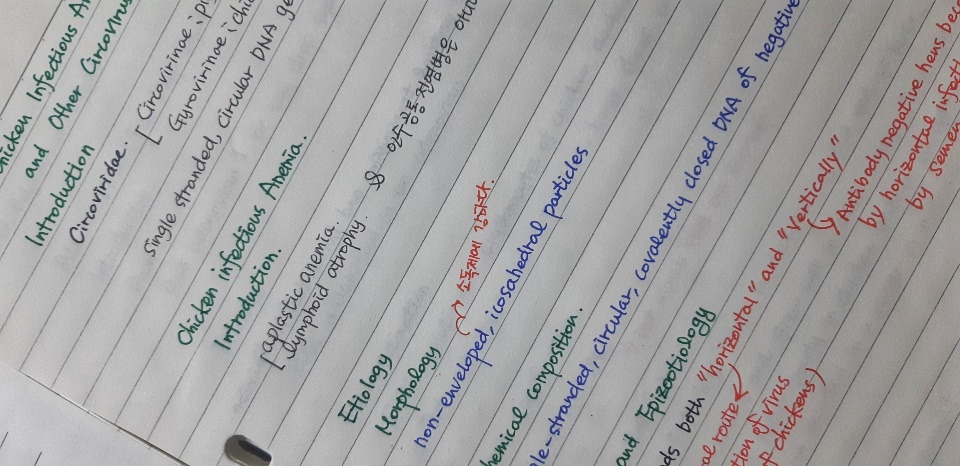 Chicken Infectious An
and Other Circovirus
Introduction
Circoviridae. [ Circovirinae ; pi
Gyrovirinae ; chic
single stranded, circular DNA ge
Chicken infectious Anemia.
Introduction.
[ aplastic anemia.
lymphoid atrophy. & 인수공통전염병은 아니
Etiology
Morphology → 소독제에 강하다.
non-enveloped, icosahedral particles
hemical composition.
le-stranded, circular, covalently closed DNA of negative
and Epizootiology
ds both "horizontal" and "vertically"
al route
tion of virus
f chickens)
Antibody negative hens bec
by horizontal infect
by semen